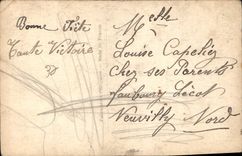 Bonne Fête
Tante Victoire
Melle
Louise Capeliez
Chez ses Parents
faubourg Lécot
Neuvilly Nord